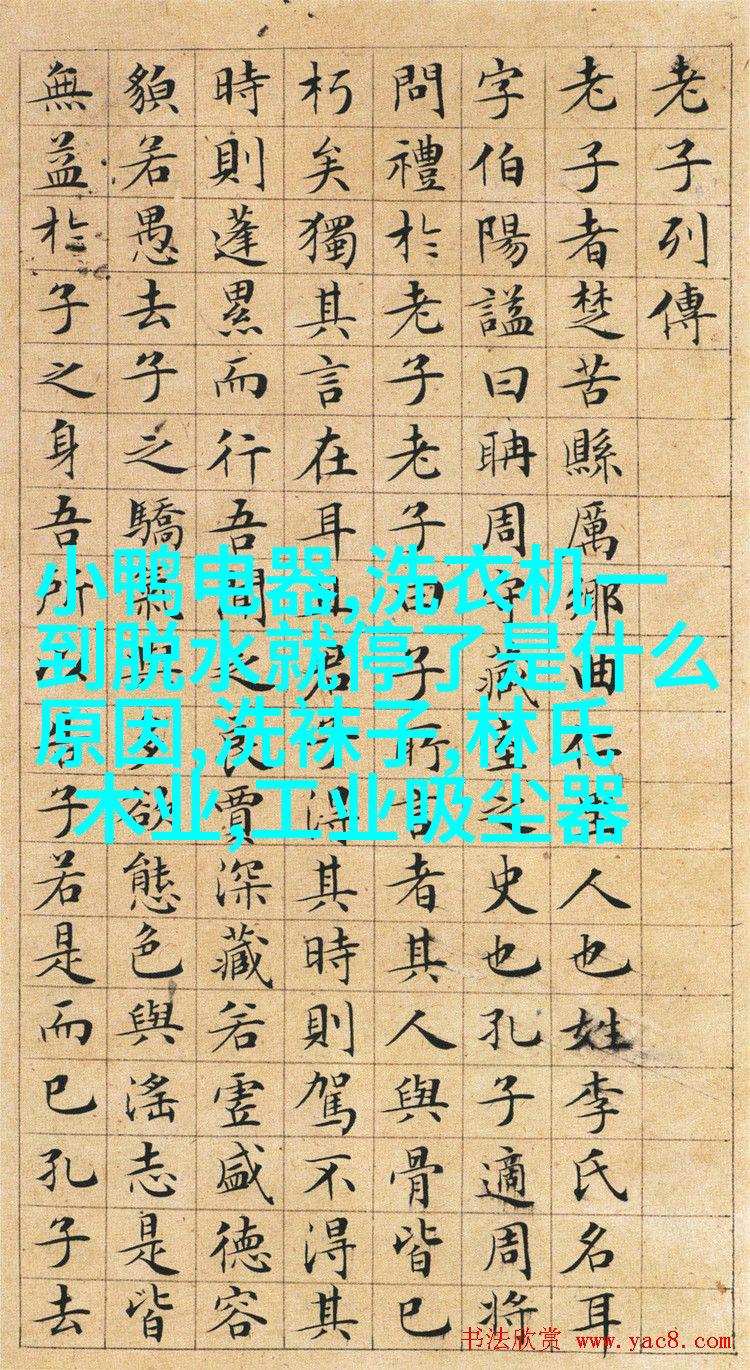 老子列傳
老子者楚苦縣厲鄉曲仁里人也姓李氏名耳
字伯陽謚曰聃周守藏室之史也孔子適周將
問禮於老子老子曰子所言者其人與骨皆已
朽矣獨其言在耳且君子得其時則駕不得其
時則蓬累而行吾聞之良賈深藏若虛盛德容
䫉若愚去子之驕氣與多欲態色與淫志是皆
無益於子之身吾所以告子若是而已孔子去
小鸭电器,洗衣机一
到脱水就停了是什么
原因,洗袜子,林氏
木业,工业吸尘器
书法欣赏 www.yac8.com